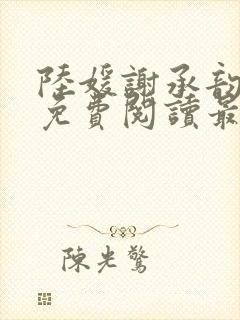 陸媛謝承韵
免費閱讀最
陳光驚